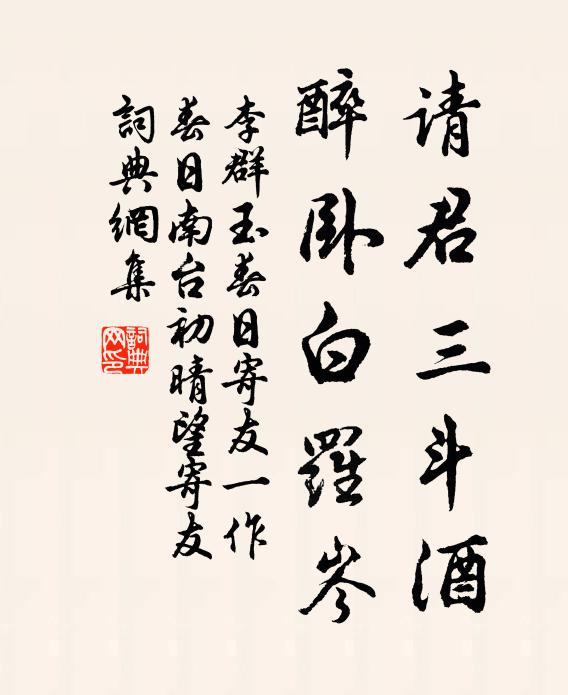 请君三斗酒
醉卧白羅岑
李群玉春日寄友一作
春日南台初晴望寄友
詞典網集
詞典
网印